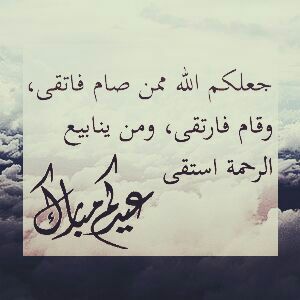 جعلكم الله ممن صام فاتقى،
وقام فارتقى، ومن ينابيع
الرحمة استقى
عيدكم مبارك